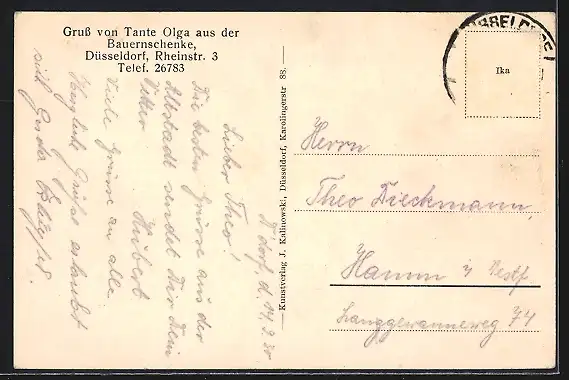 Gruß von Tante Olga aus der
Bauernschenke,
Düsseldorf, Rheinstr. 3
Telef. 26783
D'dorf, d. 14.9.30
Lieber Theo!
Die besten Grüsse aus der
Altstadt sendet Dir Dein
Vetter Hubert
Viele Grüsse an alle
Herzliche Grüße erlaubt
sich
Kunstverlag J. Kalinowski, Düsseldorf, Karolingerstr 88.
DÜSSELDORF
Ika
Herrn
Theo Dieckmann,
Hamm i/ Westf
Langgewanneweg 74